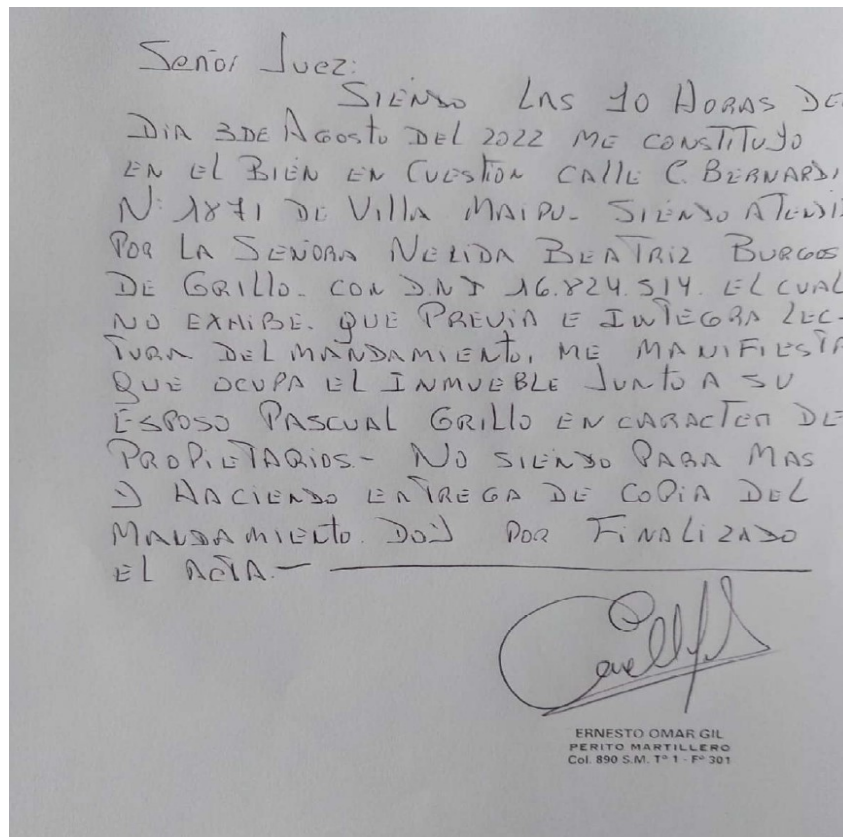 Señor Juez:
SIENDO LAS 10 HORAS DE
DIA 3 DE AGOSTO DEL 2022 ME CONSTITUYO
EN EL BIEN EN CUESTION CALLE C. BERNARDI
N: 1871 DE VILLA MAIPU- SIENDO ATENDI
POR LA SEÑORA NELIDA BEATRIZ BURGOS
DE GRILLO. CON D.N.I 16.824.514. EL CUAL
NO EXHIBE. QUE PREVIA E INTEGRA LEC-
TURA DEL MANDAMIENTO, ME MANIFIESTA
QUE OCUPA EL INMUEBLE JUNTO A SU
ESPOSO PASCUAL GRILLO EN CARACTER DE
PROPIETARIOS.- NO SIENDO PARA MAS
Y HACIENDO ENTREGA DE COPIA DEL
MANDAMIENTO. DOY POR FINALIZADO
EL ACTA.-
ERNESTO OMAR GIL
PERITO MARTILLERO
Col. 890 S.M. Tº 1 - Fº 301